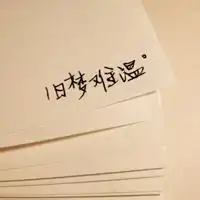 旧梦难温。